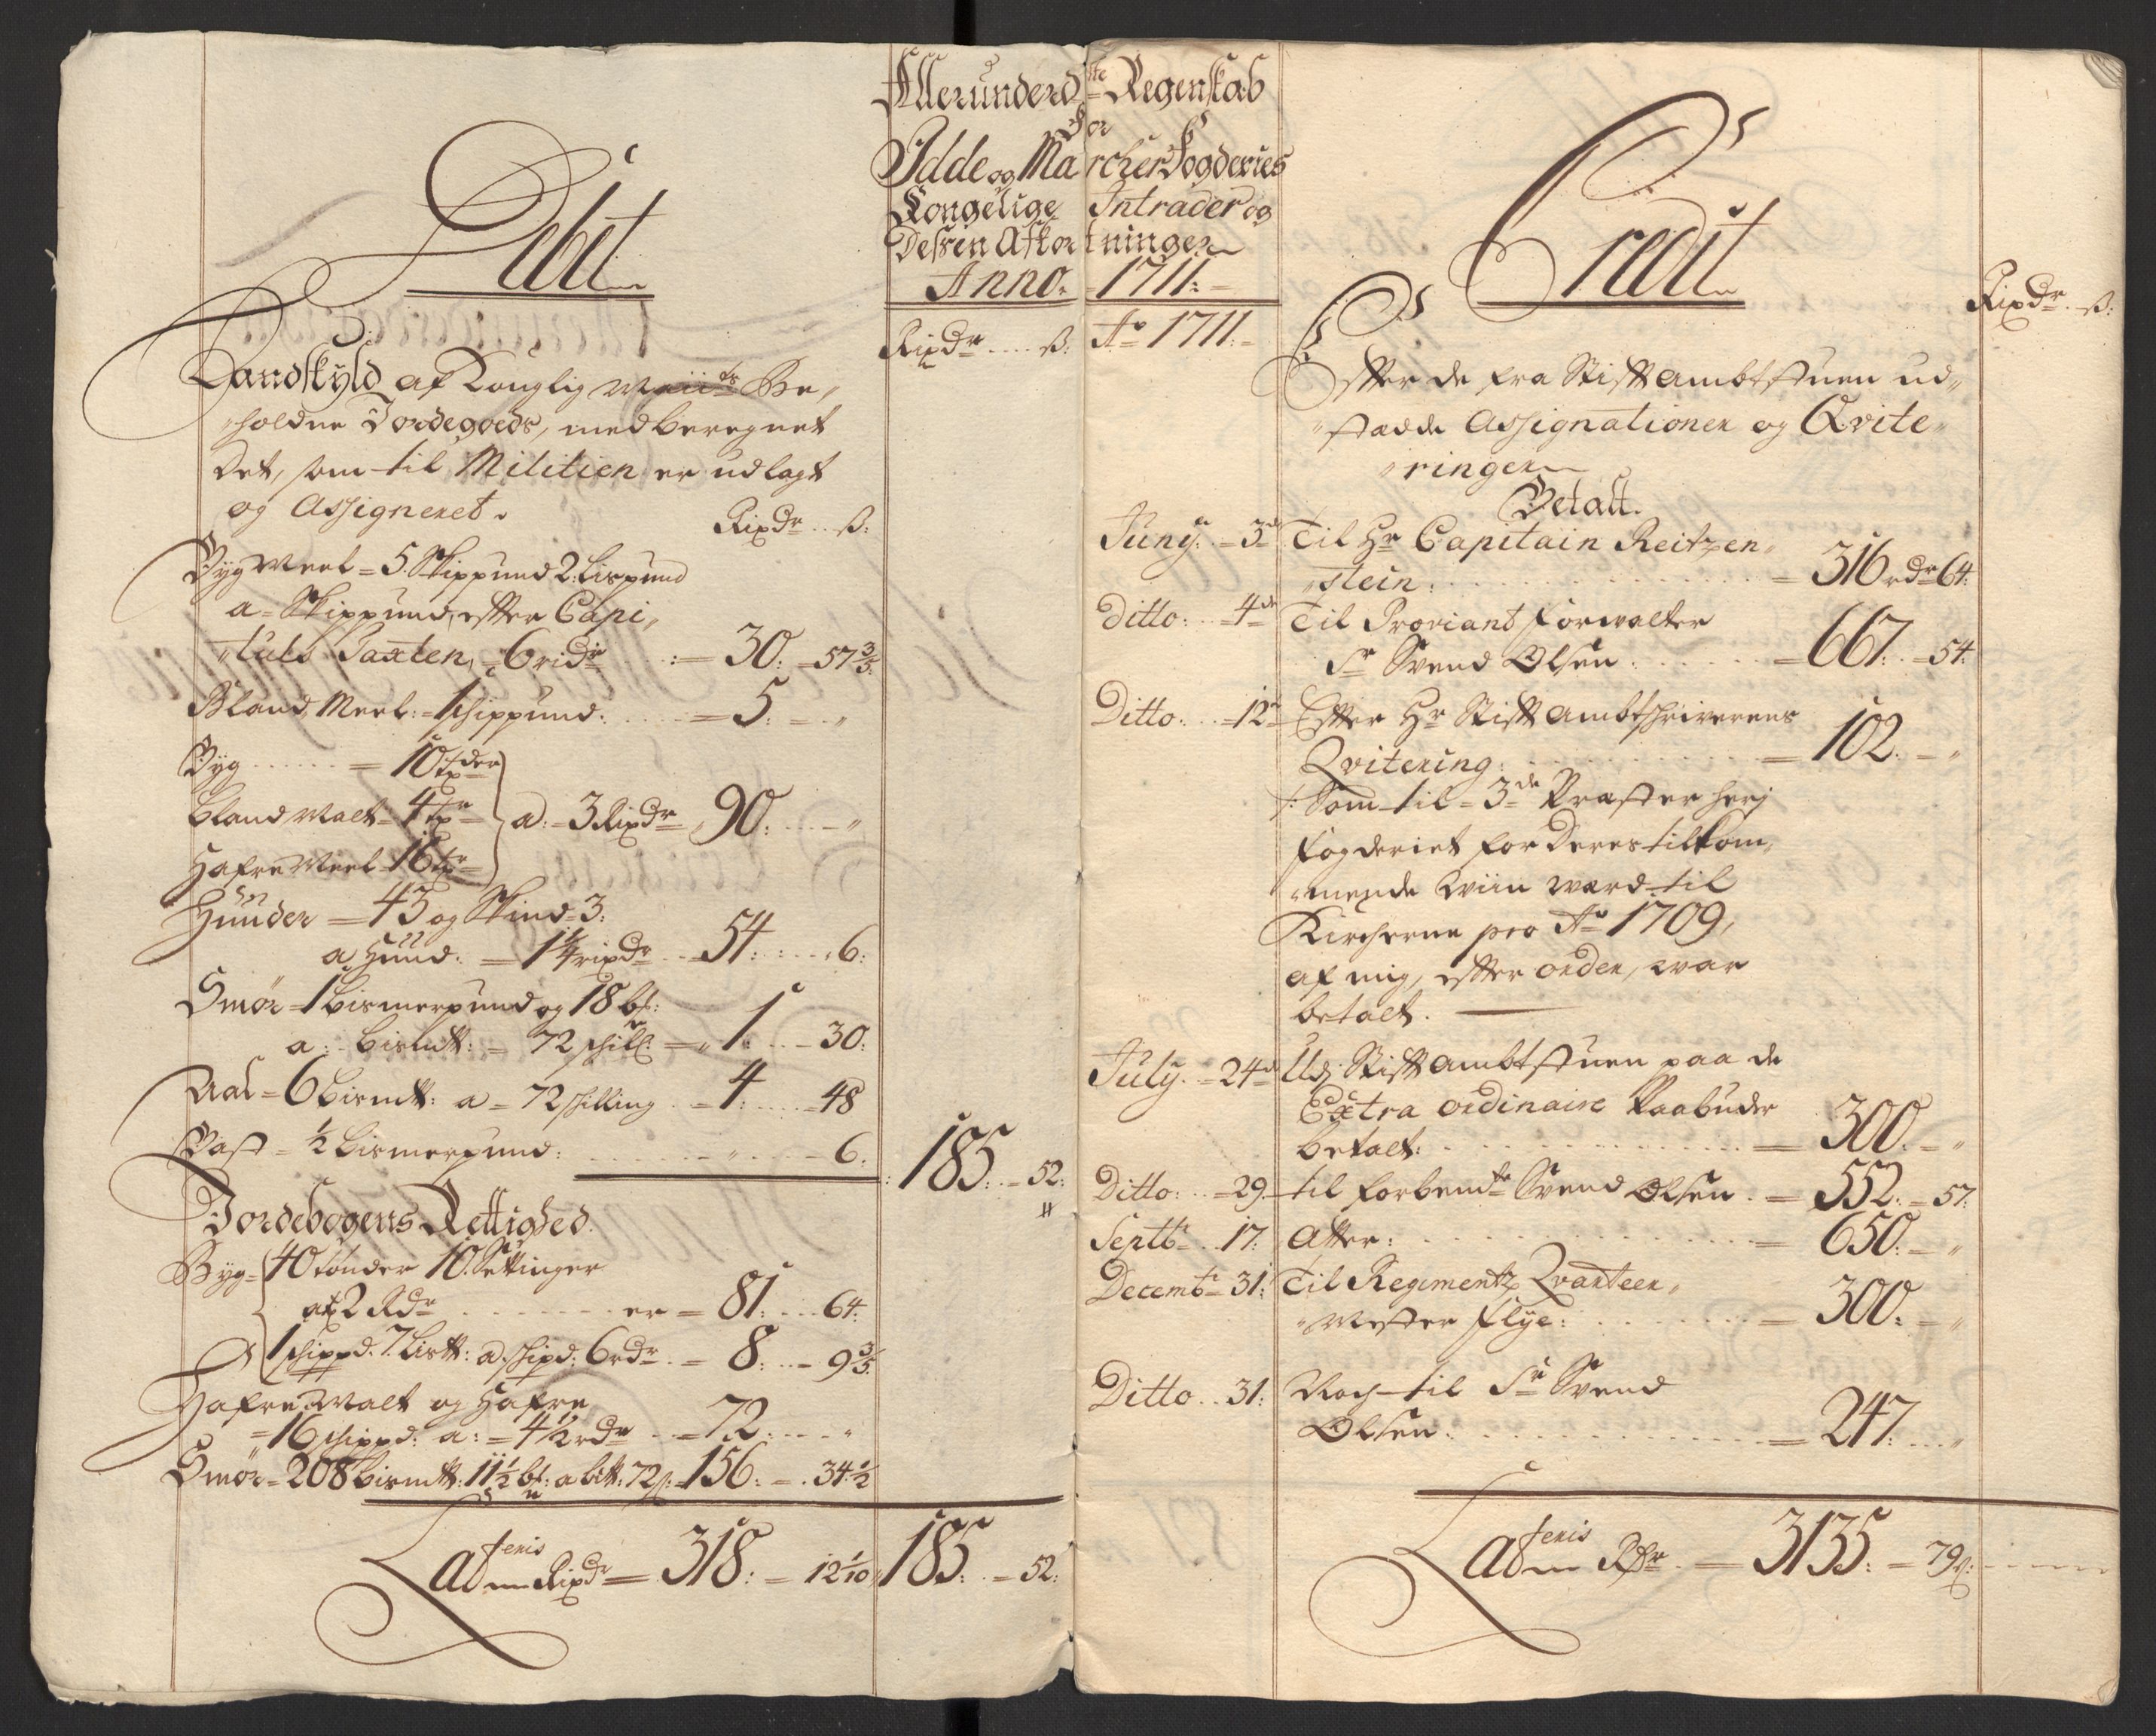 Allerunderd.ste Regenskab
for
Idde og Marcher Fogderies
Kongelige Intrader og
Dessen Afkortninger
Anno. 1711:
Debet
Rixdr .... ß:
Landskyld af Konglig Maiits Be,,
,,holdne Jordegoeds, med beregnet
Det, som til Militien er udlagt
og Assigneret.
Rixdr .. ß:
Byg Meel = 5. Skippund 2: Lispund
a = Skippund, efter Capi,,
,,tuls Taxten, = 6 ridr :=30: =57 3/5:
Bland Meel: =1 schippund: ..... =5: - "
Byg ...... = 10 tdr
bland Malt = 4 tr } a: =3 Rixdr = 90: .... "
Hafre Meel 16 tr
Huuder = 43 og Skind = 3:
a Huud: = 1 1/4 rixdr .. 54: ..... 6:
Smør = 1 Bismerpund og 18 b:
a: bismt: = 72 schill: = 1: ... 30:
Aal = 6 bismt: a = 72 schilling .. =4: .... =48
Vast = 1/2 bismerpund: ...... " .... 6.
185: .. =52:
Jordebogens Rettighed.
Byg = 40 tønder 10. Settinger
a 2 Rdr ........ er = 81: ... 64:
1 schippd. 7 List: a. shipd: 6 rdr .. = 8: ... 9 3/5
Hafre Malt og Hafre
=16 schippd: a: =4 1/2 rdr .. =72: .... "
Smør = 208 bismt: 11 1/2 b: a bt: 72 ß: =156: = .34 1/2
Lateris Rixdr = 318: = 12 1/10 185: .. =52:
Credit
Rixdr .. ß:
Ao 1711:
Efter de fra Stift Ambtstuen ud,,
,,stædde Assignationer og Qvite,,
,,ringer
Betalt.
Juny: = 3de Til Hr Capitain Reitzen,,
,,stein: ............ = 316 rdr 64:
Ditto: .. 4de Til Proviant Forvalter
Sr Svend Olsen: ..... =667: .. =54:
Ditto: ... =12te Efter Hr Stift Ambtschriverens
Qvitering: ............ =102. = "
/: Som til = 3de Præster herj
Fogderiet for Deres tilkom,,
,,mende Wiin ward til
Kircherne pro Ao 1709,
af mig, efter order, war
betalt.
July. =24de Udj Stift Ambtstuen paa de
Extra ordinaire Paabuder
betalt: ............. = 300: = "
Ditto: .. =29. til forbemte Svend Olsen . = 552: = 57:
Septbr .. 17: Atter: ............ = 650: = "
Decembr = 31: Til Regimentz Qvarteer,,
,,Mester Flye: ....... = 300: = "
Ditto .. 31: Noch til Sr Svend
Olsen: ............ = 247: .... "
Lateris Rdr = 3135: = 79 ß: .....